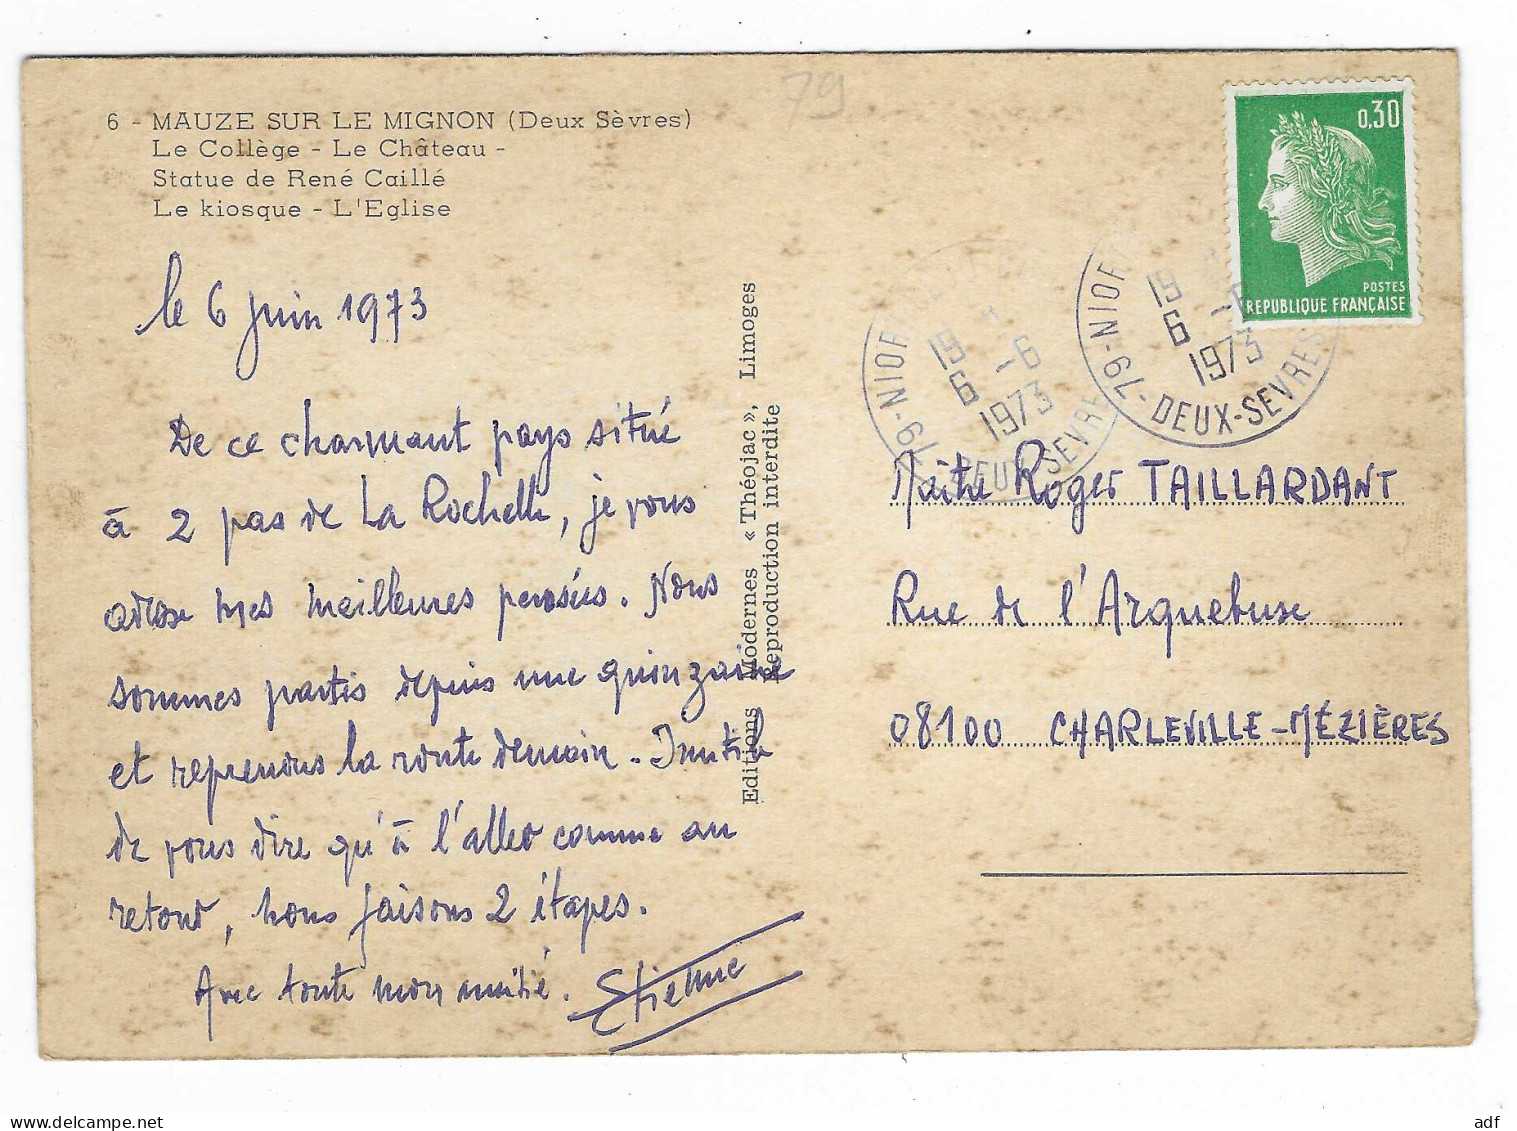 79
6 - MAUZE SUR LE MIGNON (Deux Sèvres)
Le Collège - Le Château -
Statue de René Caillé
Le kiosque - L'Eglise
le 6 juin 1973
De ce charmant pays situé
à 2 pas de La Rochelle, je vous
adresse mes meilleures pensées. Nous
sommes partis depuis une quinzaine
et reprenons la route demain. Inutile
de vous dire qu'à l'aller comme au
retour, nous faisons 2 étapes.
Avec toute mon amitié. Etienne
Editions Modernes « Théojac », Limoges
Reproduction interdite
0,30
POSTES
REPUBLIQUE FRANÇAISE
79-NIORT
19
-6
6
1973
DEUX-SEVRES
79-NIORT
19
-6
6
1973
DEUX-SEVRES
Maître Roger TAILLARDANT
Rue de l'Arquebuse
08100 CHARLEVILLE-MÉZIÈRES
adf